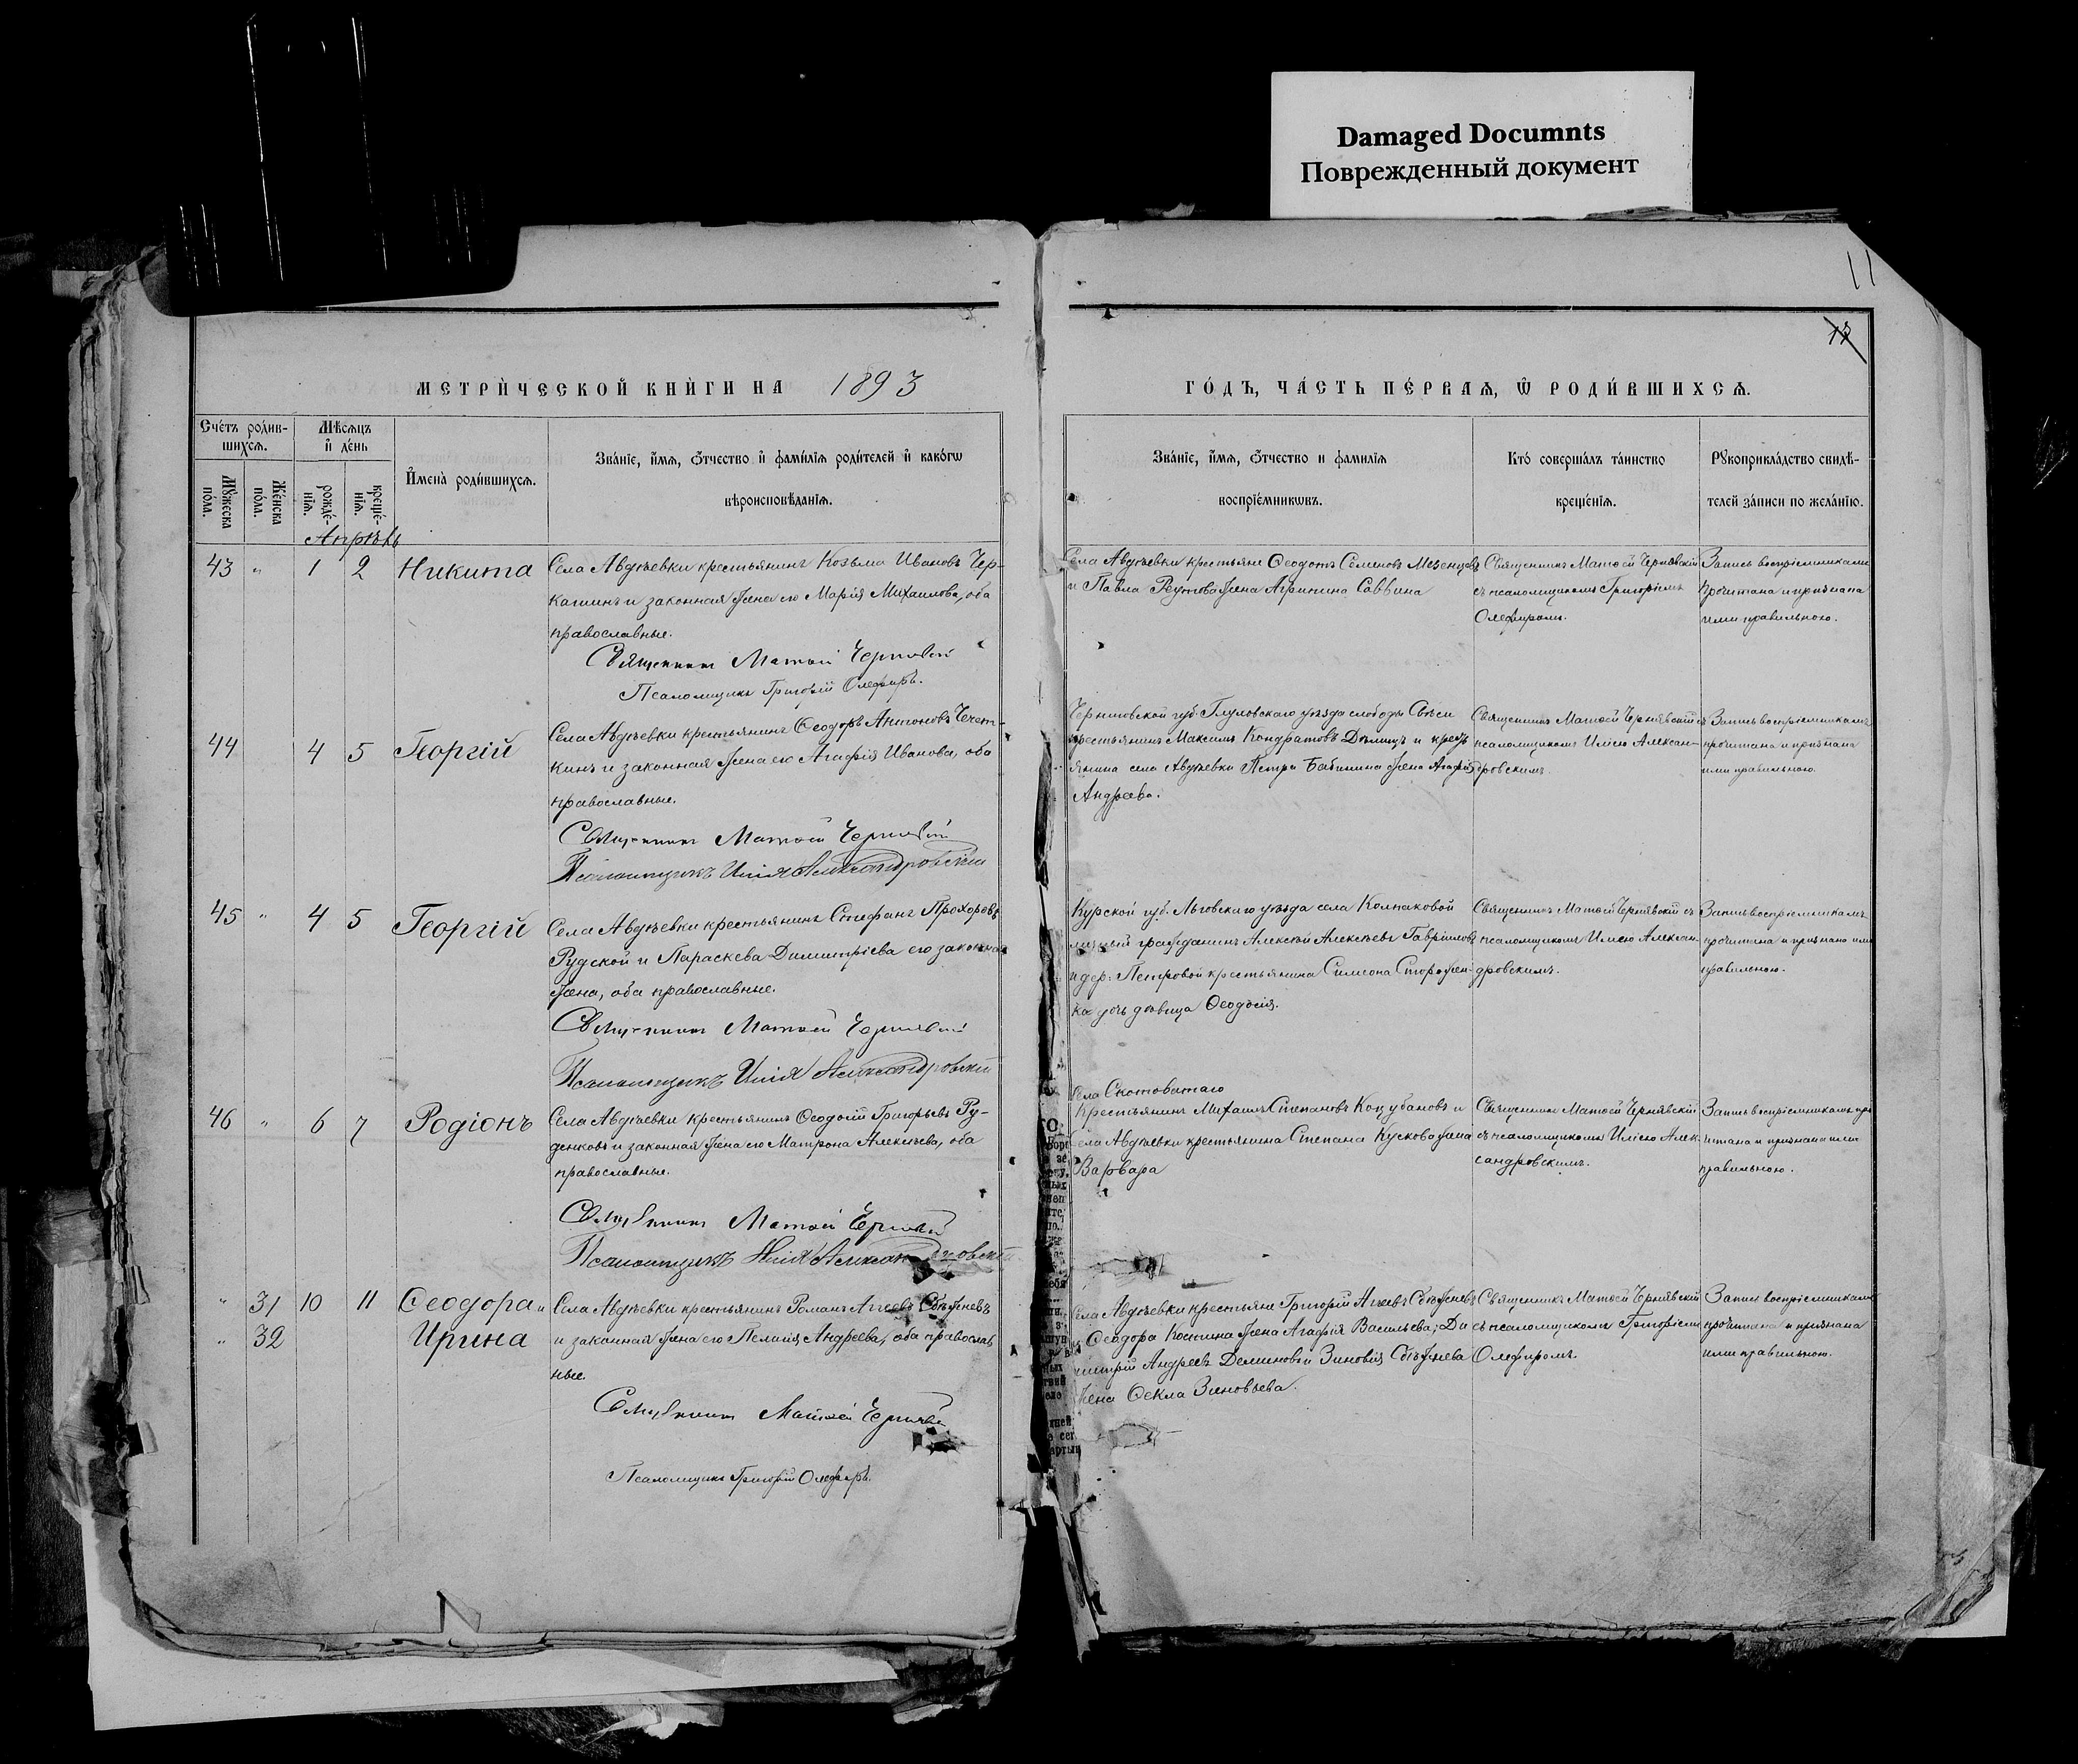 Damaged Documnts
Поврежденный документ
11
13
МЕТРИ́ЧЕСКОЙ КНИ́ГИ НА 1893
ГО́ДЪ, ЧА́СТЬ ПЕ́РВАѦ, Ѡ҆ РОДИ́ВШИХСѦ.
Сче́тъ роди́в-
шихсѧ.
Мѣ́сѧцъ
и҆ де́нь
Мꙋ́жеска
по́ла.
Же́нска
по́ла.
рожде́-
нїѧ.
креще́-
нїѧ.
И҆мена̀ роди́вшихсѧ.
Зва́нїе, и҆́мѧ, ѻ҆́тчество и҆ фами́лїѧ роди́телей и҆ како́гѡ
вѣроисповѣ́данїѧ.
Зва́нїе, и҆́мѧ, ѻ҆́тчество и фами́лїѧ
воспрїе́мникѡвъ.
Кто̀ соверша́лъ та́инство
креще́нїѧ.
Рꙋкоприкла́дство свидѣ́-
телей за́писи по жела́нїю.
Апрѣль
43 " 1 2 Никита
Села Авдѣевки крестьянинъ Козьма Ивановъ Чер-
кашинъ и законная жена его Марія Михаилова, оба
православные.
Священникъ Матѳей Чернявскій
Псаломщикъ Григорій Олефиръ.
Села Авдѣевки крестьяне Ѳеодотъ Семеновъ Мезенцевъ
и Павла Реутова жена Агрипина Саввина
Священникъ Матѳей Чернявскій
съ псаломщикомъ Григоріемъ
Олефиромъ.
Запись воспріемниками
прочитана и признана
ими правильною.
44 4 5 Георгій
Села Авдѣевки крестьянинъ Ѳеодоръ Антоновъ Чечет-
кинъ и законная жена его Агафія Иванова, оба
православные.
Священникъ Матѳей Чернявскій
Псаломщикъ Илія Александровскій
Черниговской губ. Глуховскаго уѣзда слободы
крестьянинъ Максимъ Кондратовъ и кресть
янина села Авдѣевки Петра Бабинина жена Агафія
Андреева.
Священникъ Матѳей Чернявскій съ
псаломщикомъ Иліею Алексан-
дровскимъ.
Запись воспріемниками
прочитана и признана
ими правильною.
45 " 4 5 Георгій
Села Авдѣевки крестьянинъ Стефанъ Прохоровъ
Рудской и Параскева Димитріева его законная
жена, оба православные.
Священникъ Матѳей Чернявскій
Псаломщикъ Илія Александровскій
Курской губ. Льговскаго уѣзда села Колпаковой
личный гражданинъ Алексѣй Алексѣевъ Гавриловъ
и дер. Петровой крестьянина Симеона Сторожен-
ка дочь дѣвица Ѳеодосія.
Священникъ Матѳей Чернявскій съ
псаломщикомъ Иліею Алексан-
дровскимъ.
Запись воспріемниками
прочитана и признано ими
правильною.
46 " 6 7 Родіонъ
Села Авдѣевки крестьянинъ Ѳеодосій Григорьевъ Ру-
денковъ и законная жена его Матрона Алексѣева, оба
православные.
Священникъ Матѳей Чернявскій
Псаломщикъ Илія Александровскій
Села Скотоватаго
крестьянинъ Михаилъ Степановъ Коцубановъ и
села Авдѣевки крестьянина Степана Кускова жена
Варвара
Священникъ Матѳей Чернявскій
съ псаломщикомъ Иліею Алек-
сандровскимъ.
Запись воспріемниками про
читана и признана ими
правильною.
" 31 10 11 Ѳеодора и
" 32 Ирина
Села Авдѣевки крестьянинъ Романъ Агѣевъ Сбѣжневъ
и законная жена его Пелагія Андреева, оба православ
ные.
Священникъ Матѳей Чернявскій
Псаломщикъ Григорій Олефиръ.
Села Авдѣевки крестьяне Григорій Агѣевъ Сбѣжневъ
и Ѳеодора Костина жена Агафія Васильева; Ди
митрій Андреевъ Деминовъ и Зиновія Сбѣжнева
жена Ѳекла Зиновьева.
Священникъ Матѳей Чернявскій
съ псаломщикомъ Григоріемъ
Олефиромъ.
Запись воспріемниками
прочитана и признана
ими правильною.